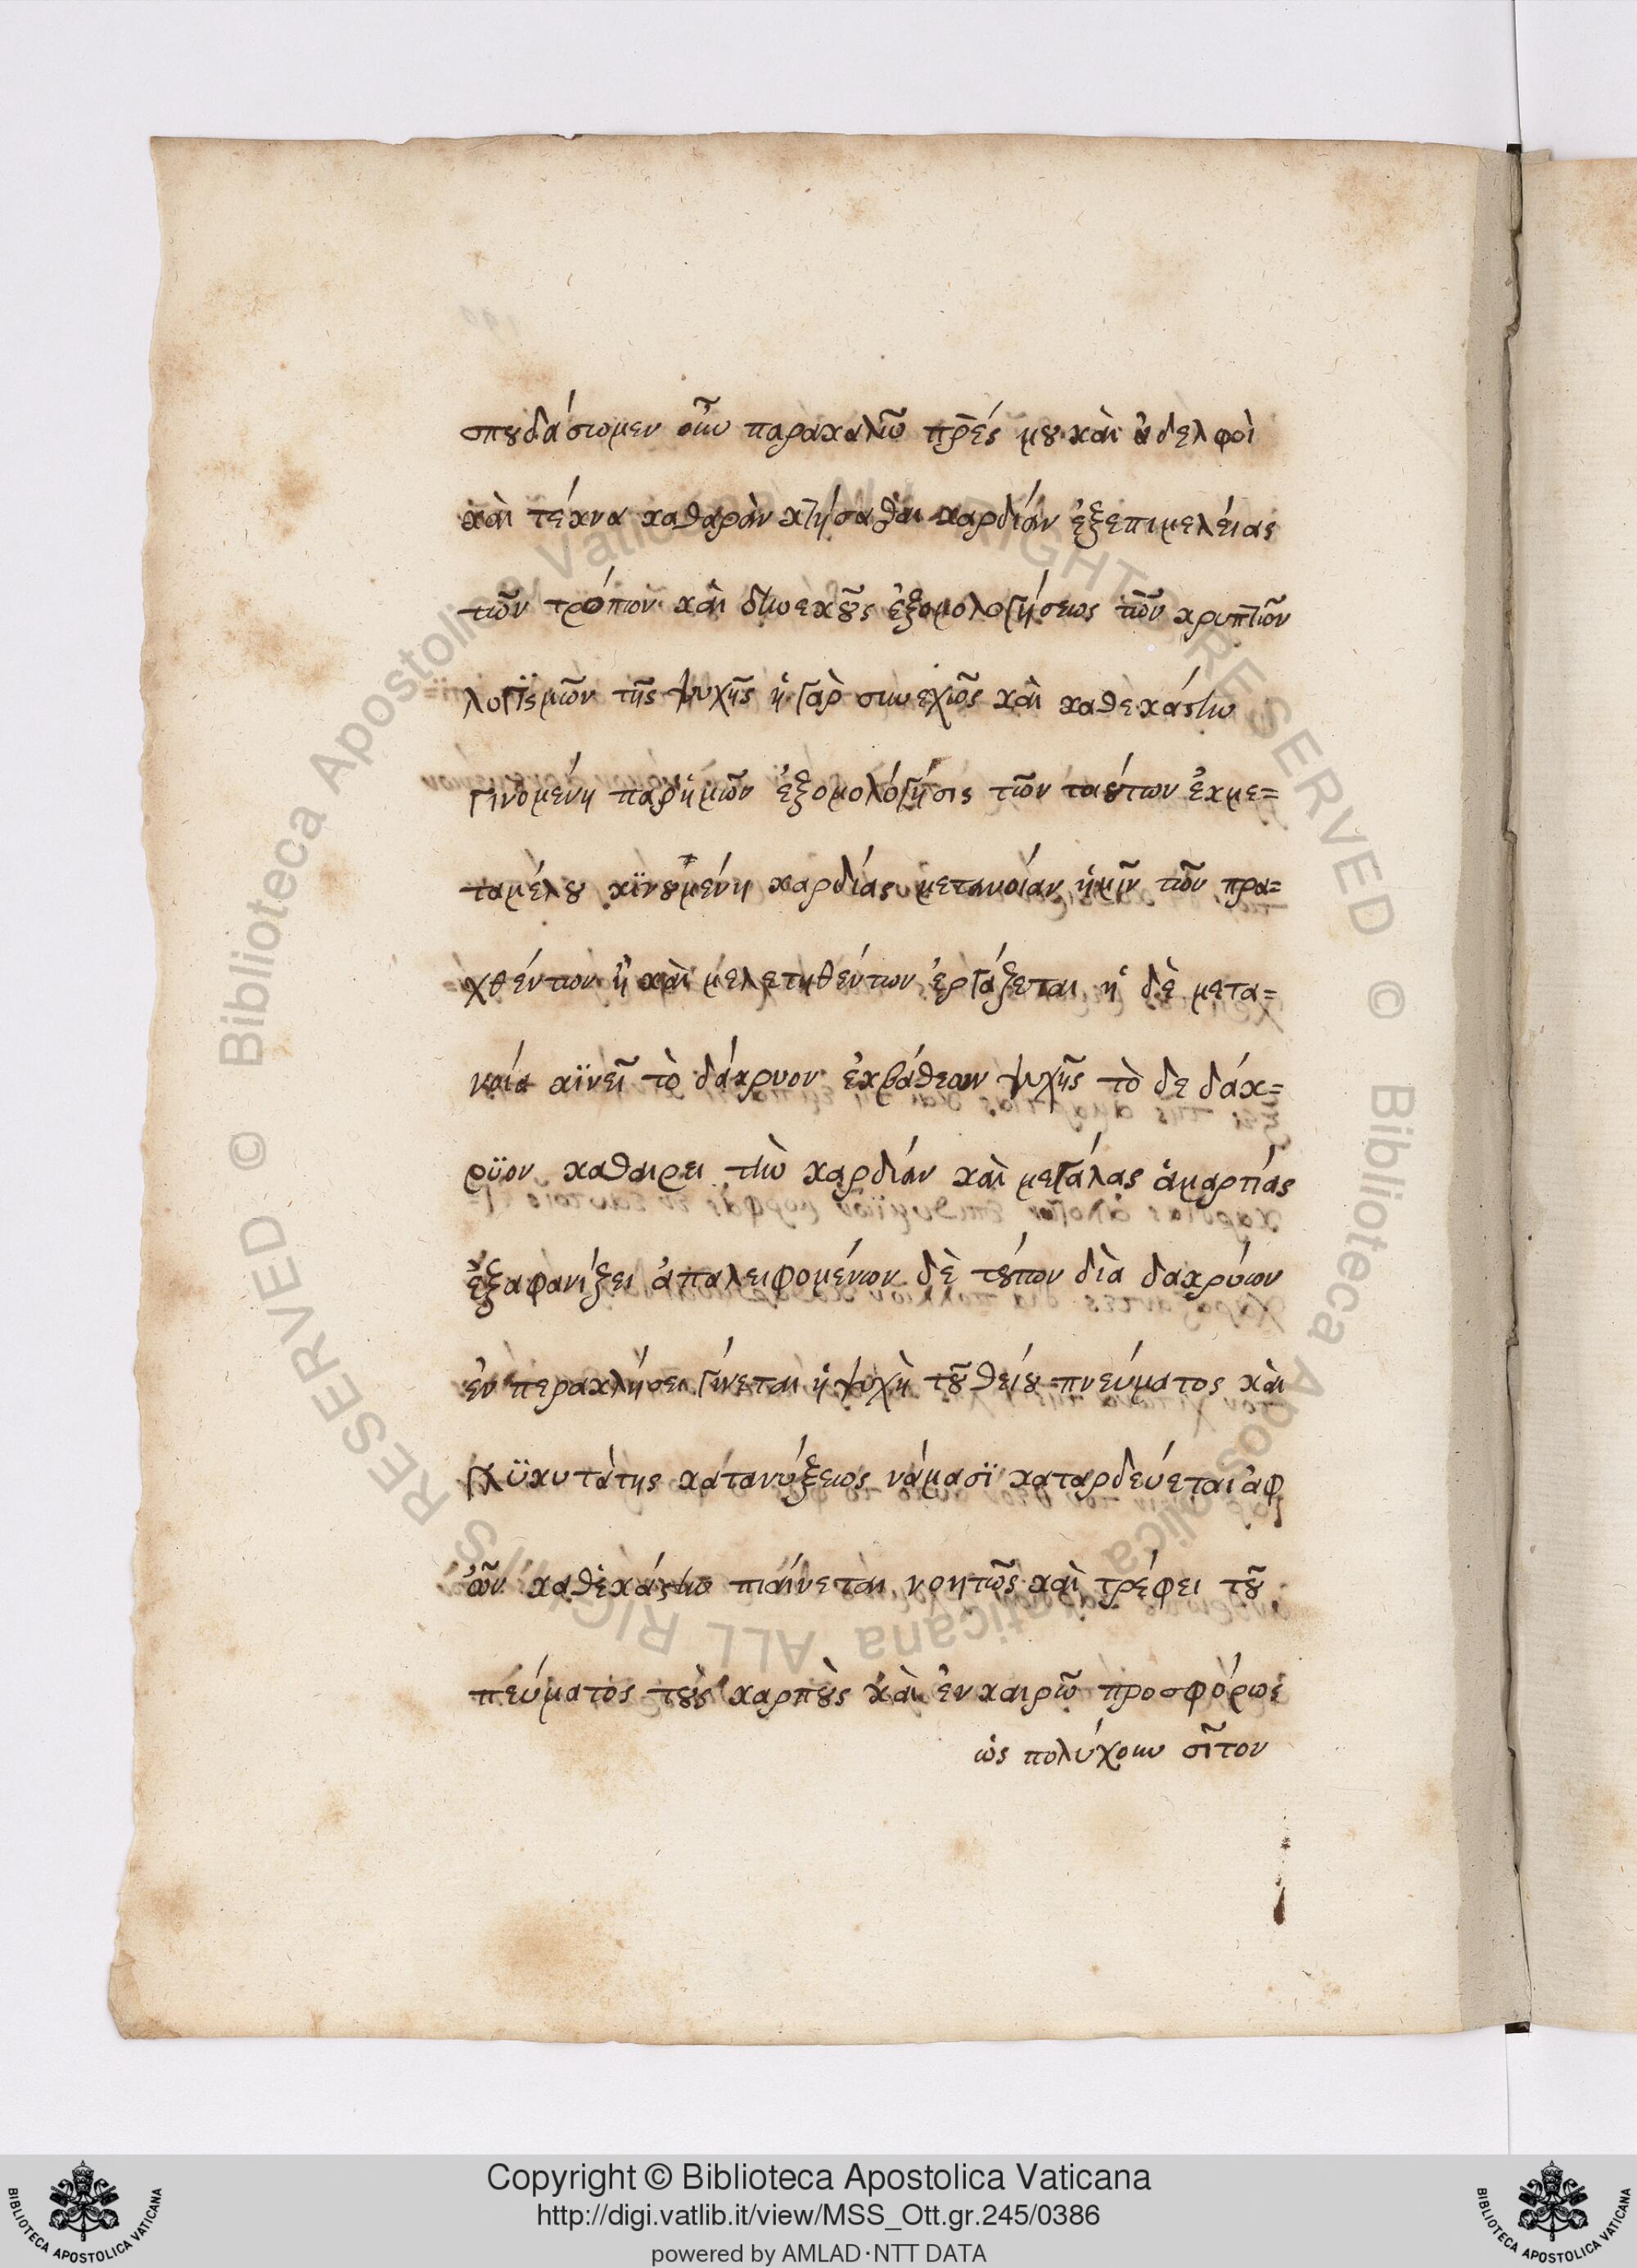 σπουδάσωμεν οὖν παρακαλῶ πρ̅ές μου καὶ ἀδελφοὶ
καὶ τέκνα καθαρὰν κτήσασθαι καρδίαν ἐξεπιμελείας
τῶν τρόπων καὶ συνεχοῦς ἐξομολογήσεως τῶν κρυπτῶν
λογϊσμῶν τῆς ψυχῆς ἡ γὰρ συνεχῶς καὶ καθεκάστην
γινομένη παρἡμῶν ἐξομολόγησις τῶν τούτων ἐκμε=
ταμέλου κϊνουμένη καρδίας μετανοίαν ἡμῖν τῶν πρα=
χθέντων ἢ καὶ μελετηθέντων ἐργάζεται ἡ δὲ μετα=
νοία κϊνεῖ τὸ δάκρυον ἐκβάθεων ψυχῆς τὸ δε δάκ=
ρϋον καθαιρει τὴν καρδίαν καὶ μεγάλας ἁμαρτίας
ἐξαφανίζει ἀπαλειφομένων δὲ τούτων δὶα δακρύων
ἐν περακλήσει γίνεται ἡ ψυχὴ τοῦ θείου πνεύματος καὶ
γλϋκυτάτης κατανύξεως νάμασϊ καταρδεύεται ἀφ
ὧν καθἑκάστην πιαίνεται νοητῶς καὶ τρέφει τοῦ
πεύματος τοὺς καρποὺς καὶ ἐν καιρῶ προσφόρως
ὡς πολύχουν σῖτον
Copyright © Biblioteca Apostolica Vaticana
http://digi.vatlib.it/view/MSS_Ott.gr.245/0386
powered by AMLAD·NTT DATA
BIBLIOTECA APOSTOLICA VATICANA
BIBLIOTECA APOSTOLICA VATICANA
© Biblioteca Apostolica Vaticana ALL RIGHTS RESERVED
© Biblioteca Apostolica Vaticana ALL RIGHTS RESERVED